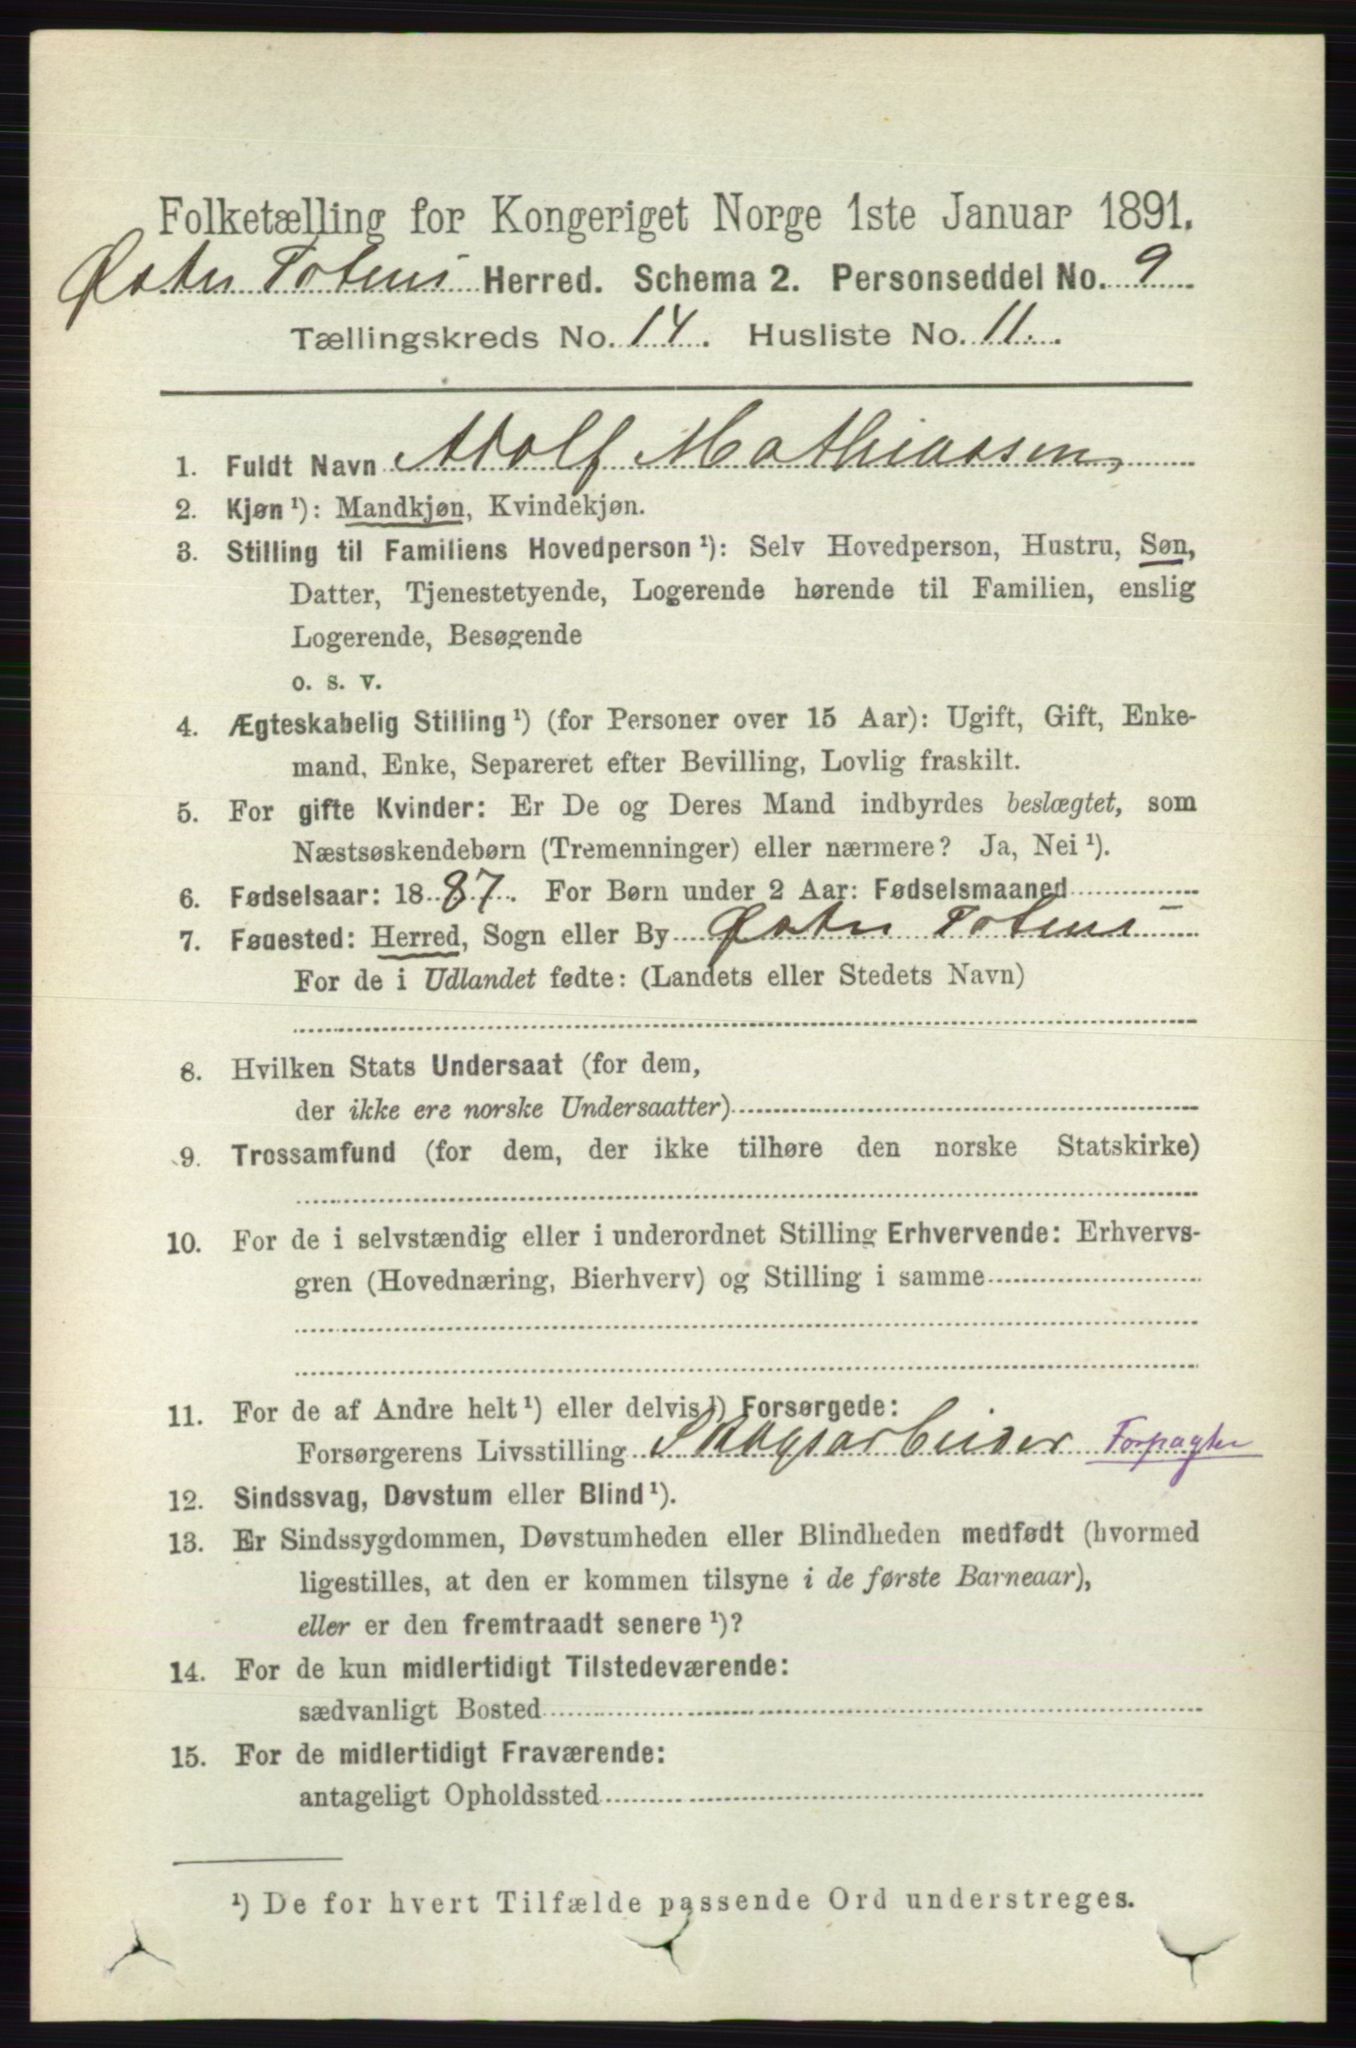 Folketælling for Kongeriget Norge 1ste Januar 1891.
Østre Totens Herred. Schema 2. Personseddel No. 9
Tællingskreds No. 14. Husliste No. 11.
1. Fuldt Navn Adolf Mathiassen,
2. Kjøn ¹): Mandkjøn, Kvindekjøn.
3. Stilling til Familiens Hovedperson ¹): Selv Hovedperson, Hustru, Søn,
Datter, Tjenestetyende, Logerende hørende til Familien, enslig
Logerende, Besøgende
o. s. v.
4. Ægteskabelig Stilling ¹) (for Personer over 15 Aar): Ugift, Gift, Enke-
mand, Enke, Separeret efter Bevilling, Lovlig fraskilt.
5. For gifte Kvinder: Er De og Deres Mand indbyrdes beslægtet, som
Næstsøskendebørn (Tremenninger) eller nærmere? Ja, Nei ¹).
6. Fødselsaar: 1887. For Børn under 2 Aar: Fødselsmaaned
7. Fødested: Herred, Sogn eller By Østre Totens
For de i Udlandet fødte: (Landets eller Stedets Navn)
8. Hvilken Stats Undersaat (for dem,
der ikke ere norske Undersaatter)
9. Trossamfund (for dem, der ikke tilhøre den norske Statskirke)
10. For de i selvstændig eller i underordnet Stilling Erhvervende: Erhvervs-
gren (Hovednæring, Bierhverv) og Stilling i samme
11. For de af Andre helt ¹) eller delvis ¹) Forsørgede:
Forsørgerens Livsstilling Skogsarbeider Forpagter
12. Sindssvag, Døvstum eller Blind ¹).
13. Er Sindssygdommen, Døvstumheden eller Blindheden medfødt (hvormed
ligestilles, at den er kommen tilsyne i de første Barneaar),
eller er den fremtraadt senere ¹)?
14. For de kun midlertidigt Tilstedeværende:
sædvanligt Bosted
15. For de midlertidigt Fraværende:
antageligt Opholdssted
¹) De for hvert Tilfælde passende Ord understreges.